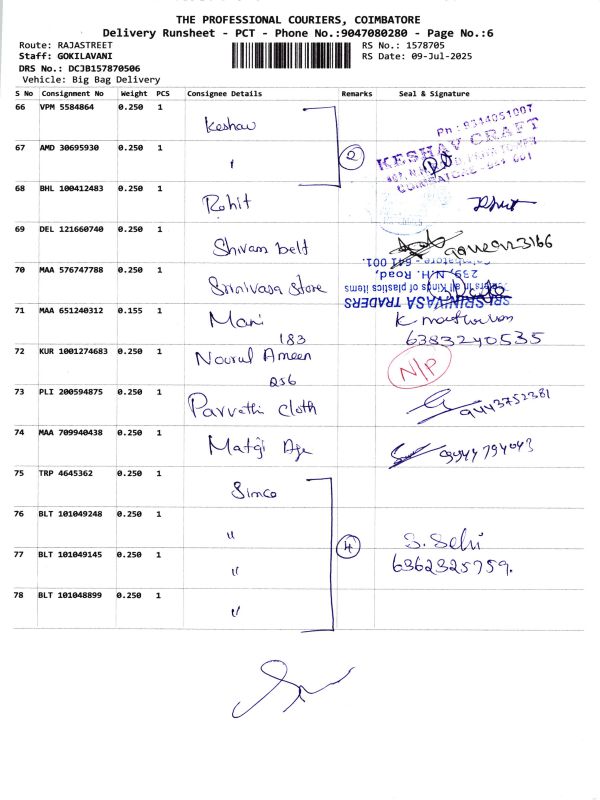 THE PROFESSIONAL COURIERS, COIMBATORE
Delivery Runsheet - PCT - Phone No.:9047080280 - Page No.:6
Route: RAJASTREET RS No.: 1578705
Staff: GOKILAVANI RS Date: 09-Jul-2025
DRS No.: DCJB157870506
Vehicle: Big Bag Delivery
S No Consignment No Weight PCS Consignee Details Remarks Seal & Signature
66 VPM 5584864 0.250 1 Keshav
Ph : 9514051007
KESHAV CRAFT
67 AMD 30695930 0.250 1 " 2
68 BHL 100412483 0.250 1 Rohit
69 DEL 121660740 0.250 1 Shivam belt
70 MAA 576747788 0.250 1 Srinivasa Store
SRI SRINIVASA TRADERS
all Kings of plastics items
239, N.H. Road,
Coimbatore - 641 001.
71 MAA 651240312 0.155 1 Mani
183 6383240535
72 KUR 1001274683 0.250 1 Noorul Ameen N/P
256
73 PLI 200594875 0.250 1 Parvathi cloth 9443752381
74 MAA 709940438 0.250 1 Matgi Age 9944794043
75 TRP 4645362 0.250 1 Simco
76 BLT 101049248 0.250 1 " 4 S. Selvi
77 BLT 101049145 0.250 1 " 6362325759.
78 BLT 101048899 0.250 1 "